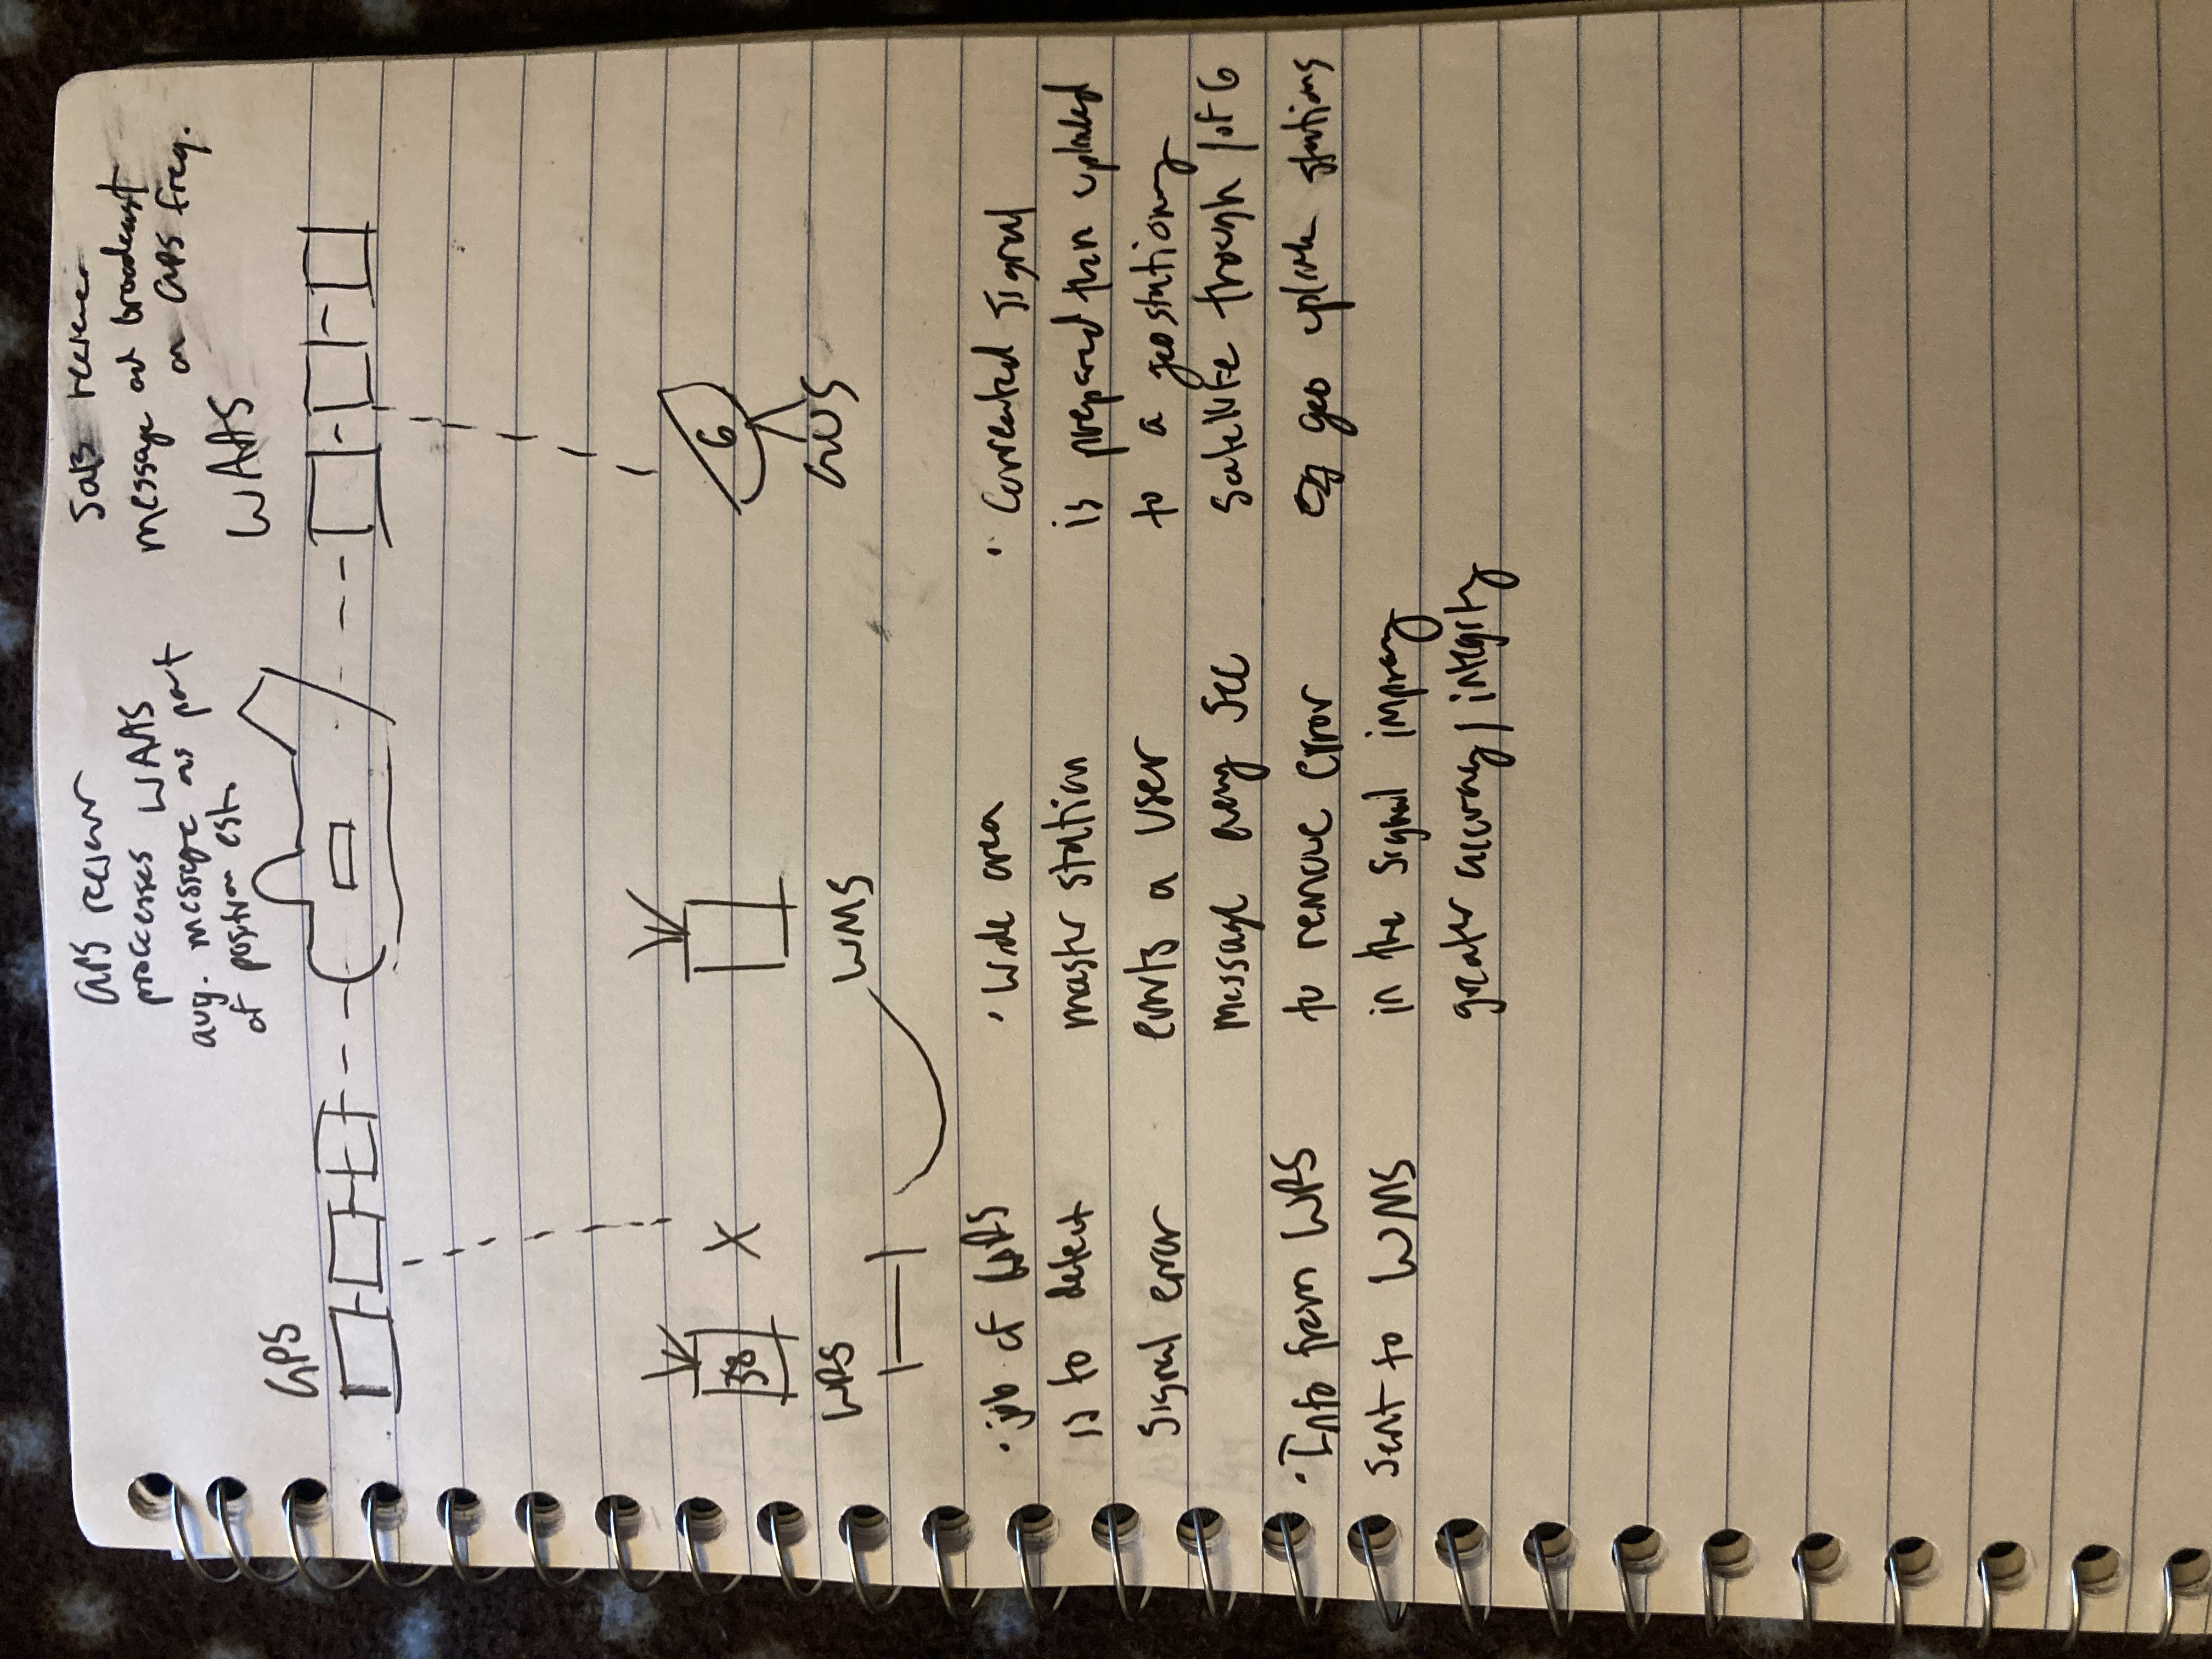 GPS
GPS receiver
processes WAAS
aug. message as part
of position est.
Sats receive
message and broadcast
on GPS freq.
WAAS
38
WRS
WMS
6
GUS
· job of WRS
is to detect
signal error
· Info from WRS
sent to WMS
· Wide area
master station
emits a user
message every sec
to remove error
in the signal improving
greater accuracy / integrity
· Corrected signal
is prepared then uplinked
to a geostationary
satellite through 1 of 6
geo uplink stations